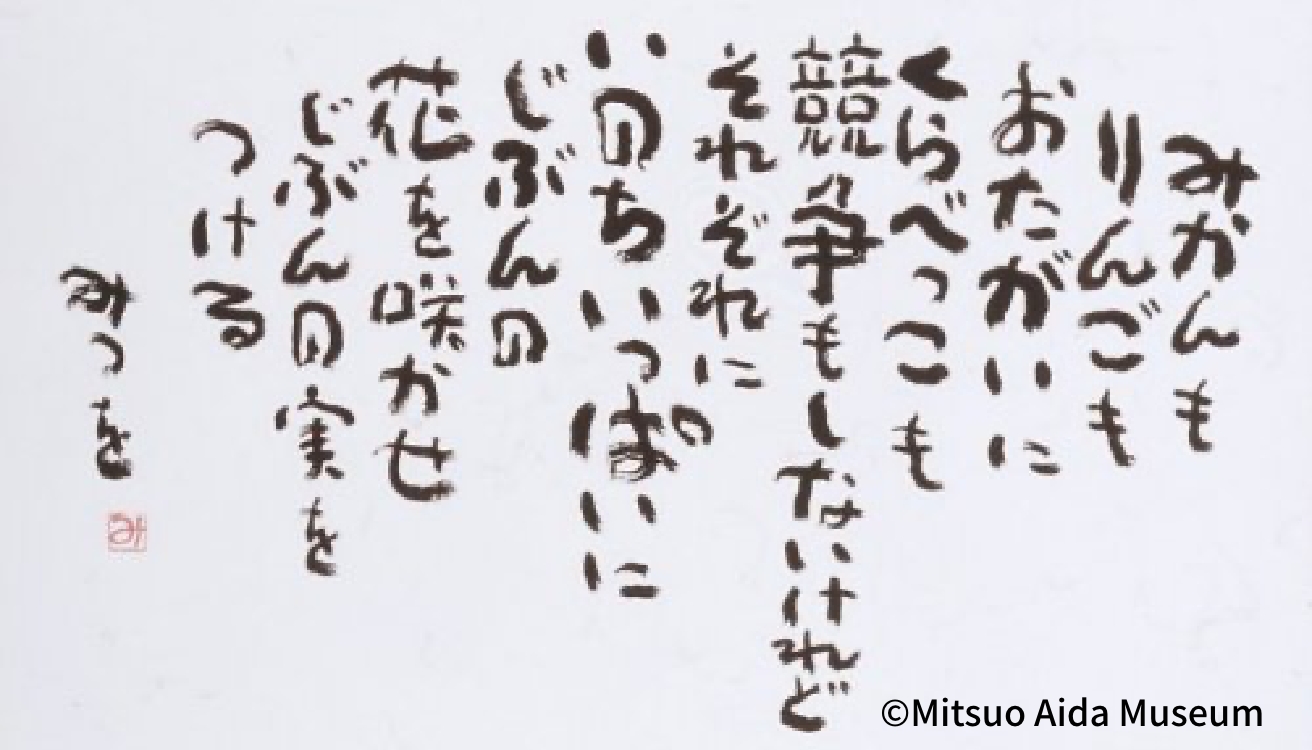 みかんも
りんごも
おたがいに
くらべっこも
競争もしないけれど
それぞれに
いのちいっぱいに
じぶんの
花を咲かせ
じぶんの実を
つける
みつを
み
©Mitsuo Aida Museum